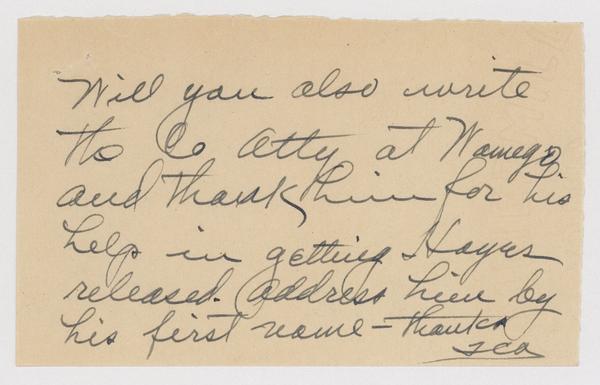 Will you also write
the Co Atty at Wamego
and thank him for his
help in getting Hayes
released. Address him by
his first name - thanks